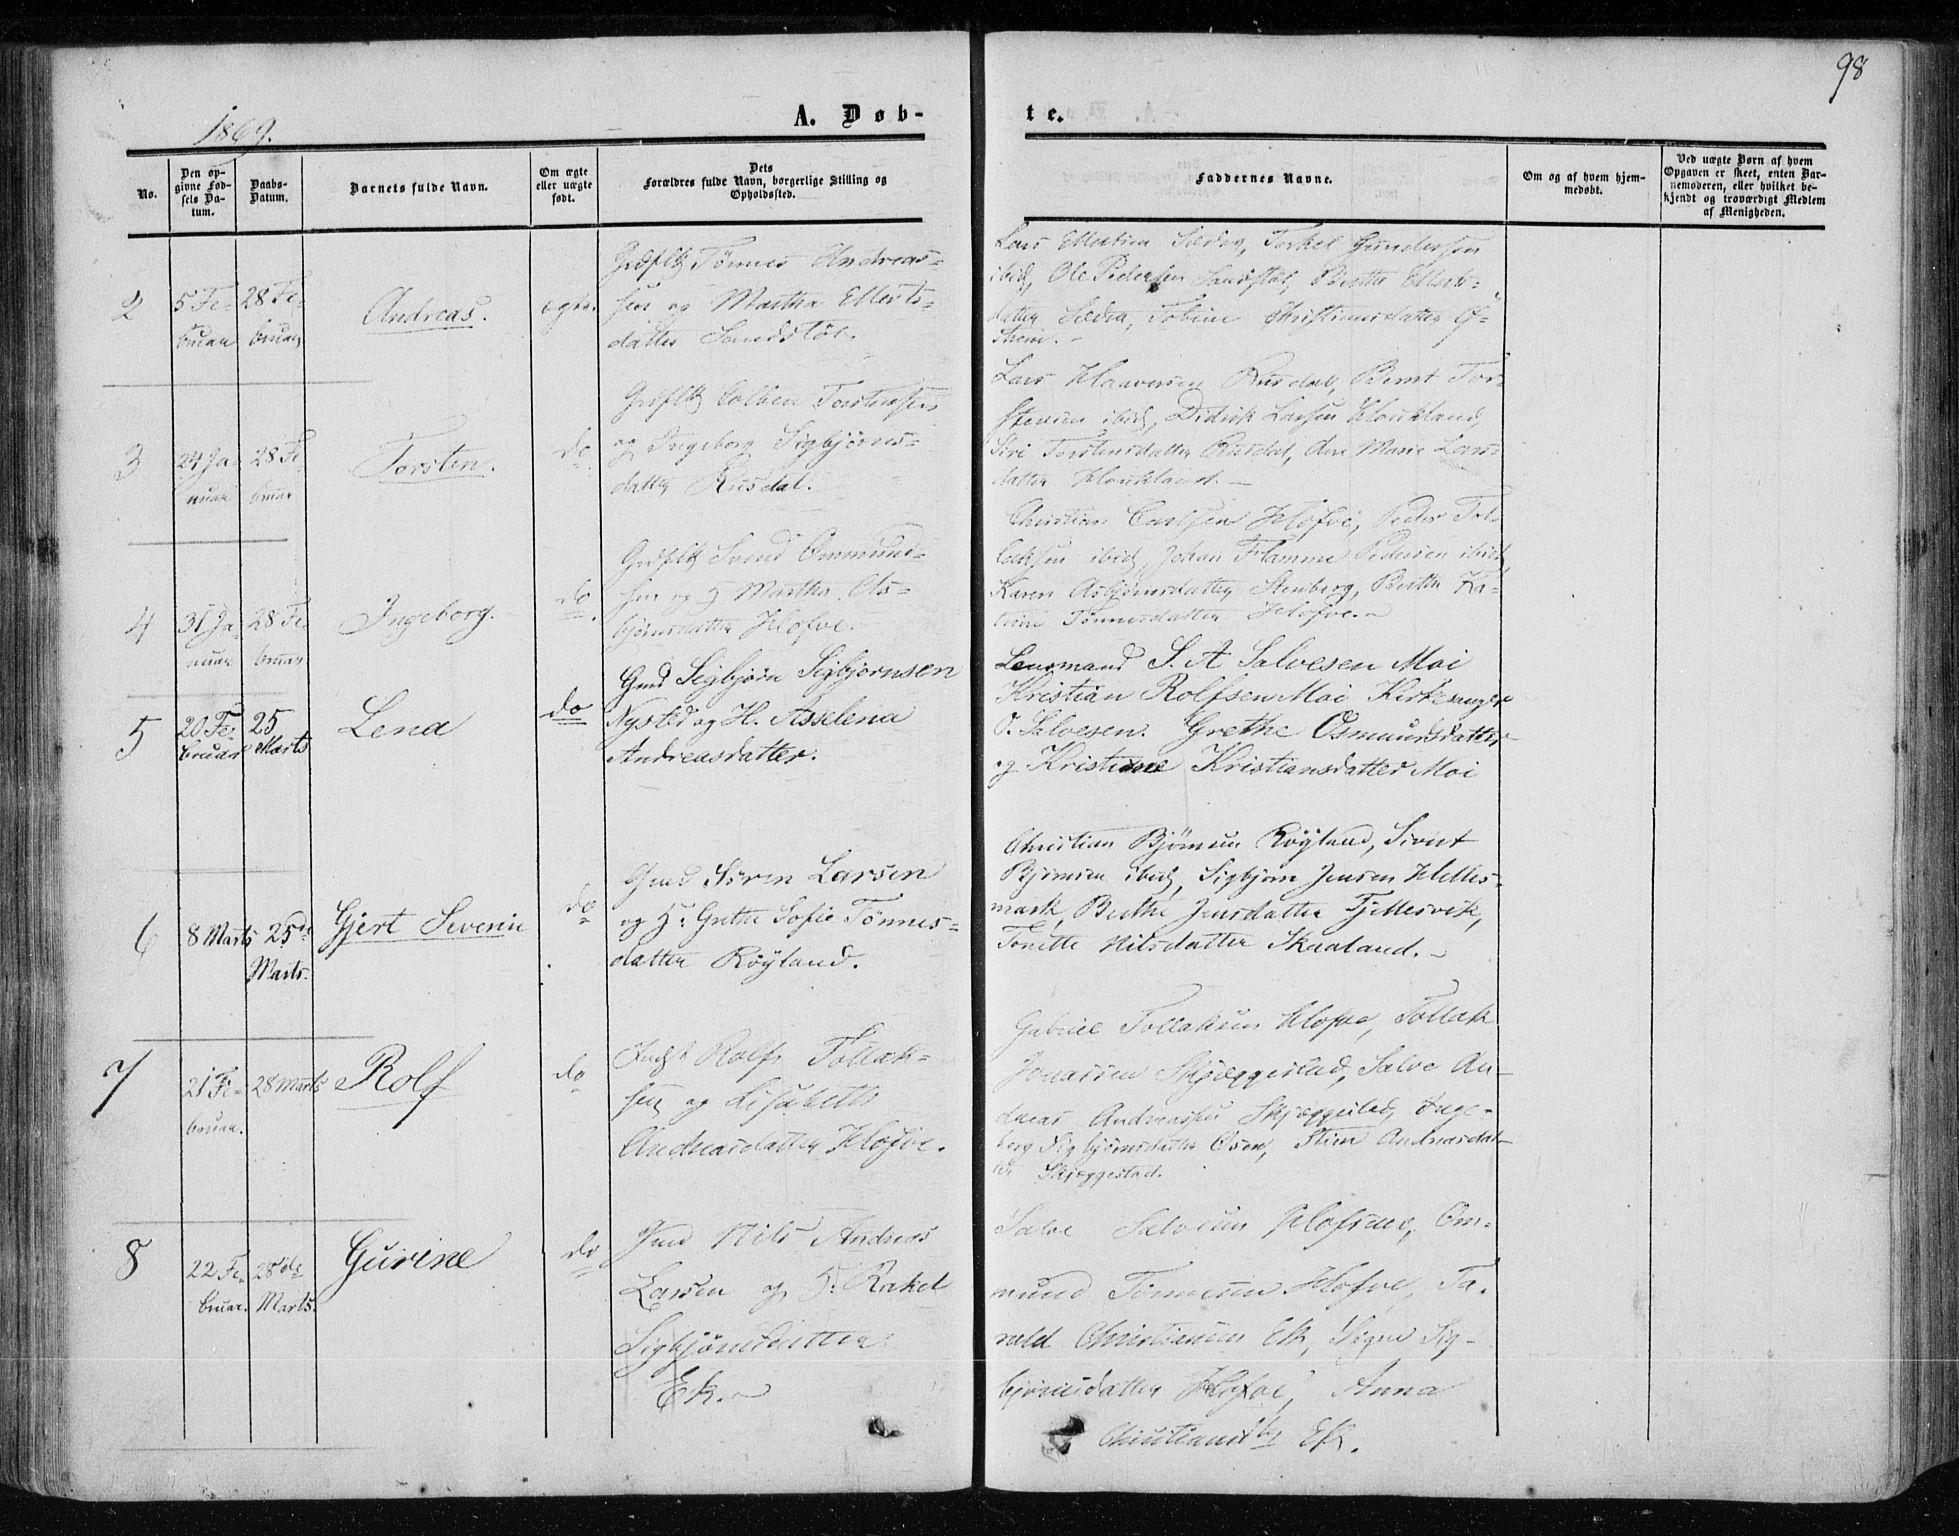 98
1869.
A. Døb-
te.
No.
Den op-
givne Fød-
sels Da-
tum.
Daabs-
Datum.
Barnets fulde Navn.
Om ægte
eller uægte
født.
Dets
Forældres fulde Navn, borgerlige Stilling og
Opholdssted.
Faddernes Navne.
Om og af hvem hjem-
medøbt.
Ved uægte Børn af hvem
Opgaven er skeet, enten Bar-
nemoderen, eller hvilket be-
kjendt og troværdigt Medlem
af Menigheden.
2
5 Fe-
bruar
28 Fe-
bruar
Andreas.
ægte.
Tønnes Andreas-
sen og Martha Ellerts-
datter Sandstøl.
Lars Torkel Gundersen
ibid, Ole Pedersen Sandstøl, Berthe
datter Tobine Christiansdatter Ø-
strem.-
3
24 Ja-
nuar
28 Fe-
bruar
Torsten.
do
Torstensen
og Ingeborg Sigbjørns-
datter Rusdal.
Lars Rusdal, Bernt Tor-
stensen ibid, Didrik Larsen Houkland,
Siri Torstensdatter Rusdal, Ane Marie Lars-
datter Houkland.-
4
31 Ja-
nuar
28 Fe-
bruar
Ingeborg.
do
Svend Ommund-
sen og H Martha As-
bjørnsdatter Hofve.
Christian Carlsen Hofve, Peder Tol-
laksen ibid, Johan Flamme Pedersen ibid,
Karen Asbjørnsdatter Stenberg, Berthe Ka-
trine Tønnesdatter Hofve.-
5
20 Fe-
bruar
25
Marts
Lena
do
Gmd Sigbjørn Sigbjørnsen
Nysted og H. Asselena
Andreasdatter.
Lensmand S. A Salvesen Moi
Kristian Rolfsen Moi Kirkesanger
O. Salvesen. Grethe Osmundsdatter
og Kristine Kristiansdatter Moi
6
8 Marts
25de
Marts.
Gjert Severin
do
Gmd Søren Larsen
og H: Grethe Sofie Tønnes-
datter Röyland.
Christian Bjørnsen Röyland, Sivert
Bjørnsen ibid, Sigbjørn Jensen Helles-
mark, Berthe Jensdatter Fjellesvik,
Tonette Nilsdatter Skaaland.-
7
21 Fe-
bruar.
28 Marts
Rolf
do
Rolf Tollak-
sen og Lisabeth
Andreasdatter Hofve.
Gabriel Tollaksen Hofve, Tollak
Jonassen Skjæggestad, Salve An-
dreas Andreassen Skjæggestad, Inge-
borg Sigbjørnsdatter Osen, Stine Andreasdat-
ter Skjæggestad.
8
22 Fe-
bruar.
28de
Marts.
Gurine
do
Gmd Nils Andreas
Larsen og H. Rakel
Sigbjørnsdatter
Ek.-
Salve Salvesen Om-
mund Tønnesen Hofve, Ta-
rald Christiansen Ek, Signe Sig-
bjørnsdatter Hofve, Anna
Christiansdtr Ek.